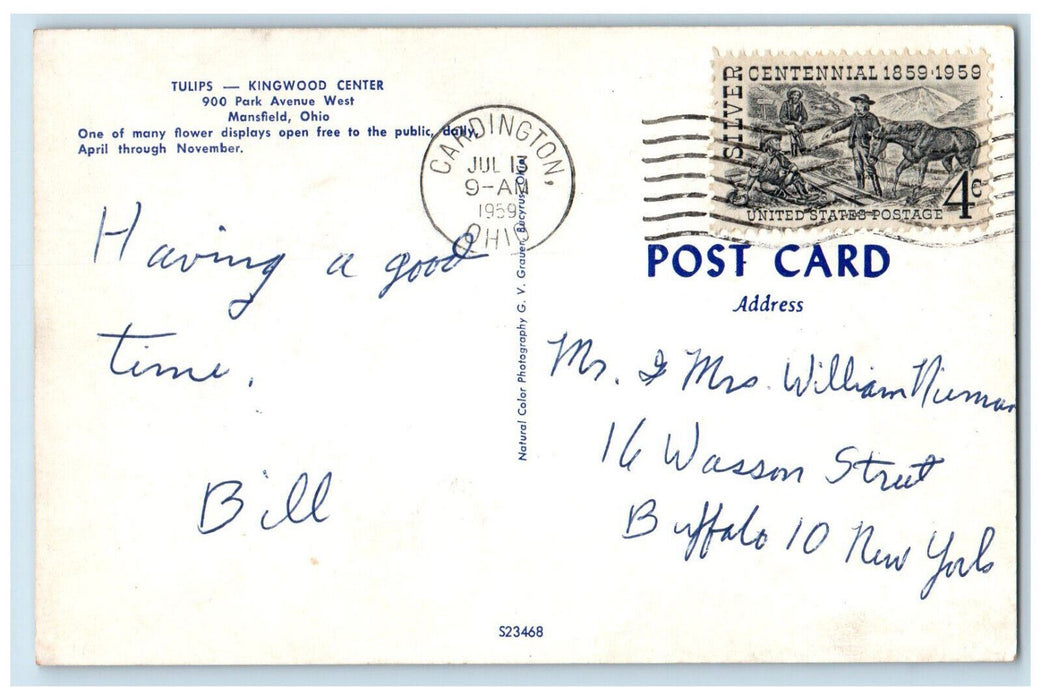 TULIPS — KINGWOOD CENTER
900 Park Avenue West
Mansfield, Ohio
One of many flower displays open free to the public, daily,
April through November.
CARDINGTON,
JUL 13
9-AM
1959
OHIO
SILVER
CENTENNIAL 1859·1959
4c
UNITED STATES POSTAGE
Having a good
time.
Bill
Natural Color Photography G. V. Grauer, Bucyrus, Ohio
POST CARD
Address
Mr. & Mrs. William Nieman
16 Wasson Street
Buffalo 10 New York
S23468